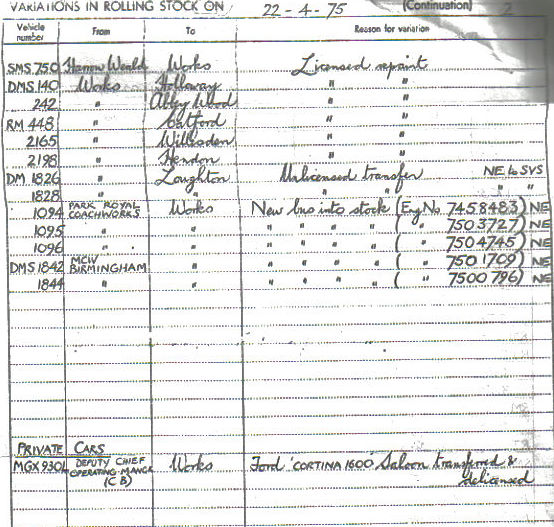 VARIATIONS IN ROLLING STOCK ON 22-4-75 (Continuation) 2
Vehicle number From To Reason for variation
SMS 750 Harrow Weald Works Licensed repaint
DMS 140 Works Holloway " "
242 " Abbey Wood " "
RM 448 " Catford " "
2165 " Willesden " "
2198 " Hendon " "
DM 1826 " Loughton Unlicensed transfer NE to SVS
1828 " " " " " "
1094 PARK ROYAL COACHWORKS Works New bus into stock (Eng No 7458483) NE
1095 " " " " " " ( " 7503727) NE
1096 " " " " " " ( " 7504745) NE
DMS 1842 MCW BIRMINGHAM " " " " " ( " 7501709) NE
1844 " " " " " " ( " 7500796) NE
PRIVATE CARS
MGX 930L DEPUTY CHIEF OPERATING MANGR (C B) Works Ford 'CORTINA 1600' Saloon transferred & delicensed